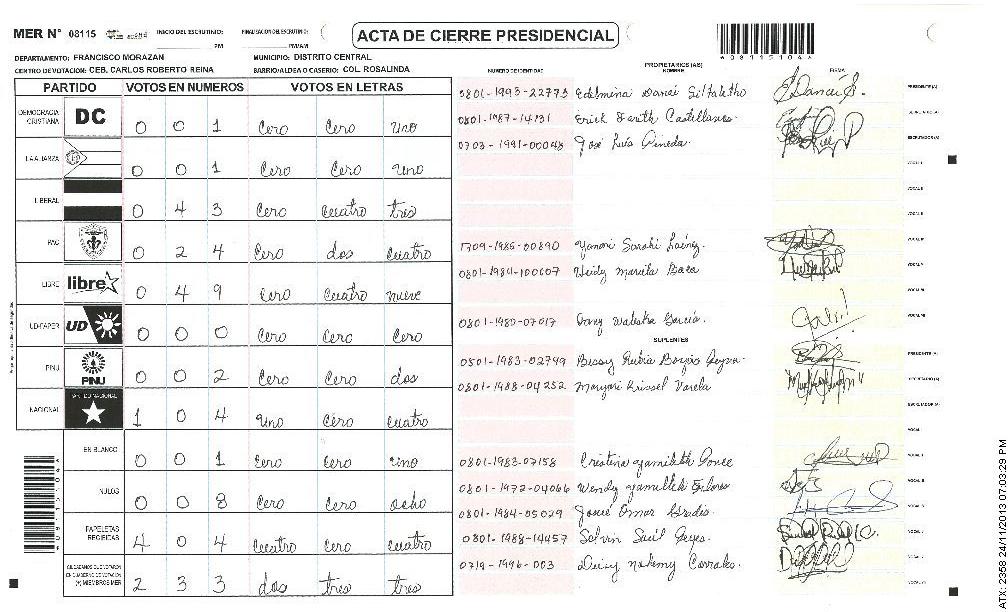 MER N° 08115 INICIO DEL ESCRUTINIO: PM FINALIZACION DEL ESCRUTINIO: PM/AM
ACTA DE CIERRE PRESIDENCIAL
DEPARTAMENTO: FRANCISCO MORAZAN MUNICIPIO: DISTRITO CENTRAL
CENTRO DE VOTACION: CEB. CARLOS ROBERTO REINA BARRIO/ALDEA O CASERIO: COL. ROSALINDA
PARTIDO VOTOS EN NUMEROS VOTOS EN LETRAS
DEMOCRACIA CRISTIANA DC 0 0 1 Cero Cero Uno
LA ALIANZA 0 0 1 Cero Cero Uno
LIBERAL 0 4 3 Cero Cuatro tres
PAC 0 2 4 Cero dos Cuatro
LIBRE libre 0 4 9 Cero Cuatro nueve
UD-FAPER UD 0 0 0 Cero Cero Cero
PINU PINU 0 0 2 Cero Cero dos
NACIONAL PARTIDO NACIONAL 1 0 4 Uno Cero Cuatro
EN BLANCO 0 0 1 Cero Cero Uno
NULOS 0 0 8 Cero Cero ocho
PAPELETAS RECIBIDAS 4 0 4 Cuatro Cero Cuatro
CIUDADANOS QUE VOTARON EN CUADERNO DE VOTACION (+) MIEMBROS MER 2 3 3 dos tres tres
PROPIETARIOS (AS)
NUMERO DE IDENTIDAD NOMBRE FIRMA
0801-1993-22773 Edelmina Danai PRESIDENTE (A)
0801-1987-14731 Erick Darith Castellanos
0703-1991-00048 José Luis Pineda ESCRUTADOR (A)
VOCAL I
VOCAL II
1709-1986-00890 Yamari Sarahi Laínez
0801-1984-100607 Heidy Marcela Baca
0801-1980-07017 García
SUPLENTES
0501-1983-02749 PRESIDENTE (A)
0801-1988-04252 Maryori Krissel Varela SECRETARIO (A)
ESCRUTADOR (A)
0801-1983-07158 Cristina Ponce
0801-1972-04066 Wendy
0801-1984-05029 Josué Omar
0801-1988-14457 Selvin Saúl Reyes
0719-1996-003 Deisy Nohemy Corrales
ATX: 2358 24/11/2013 07:03:29 PM